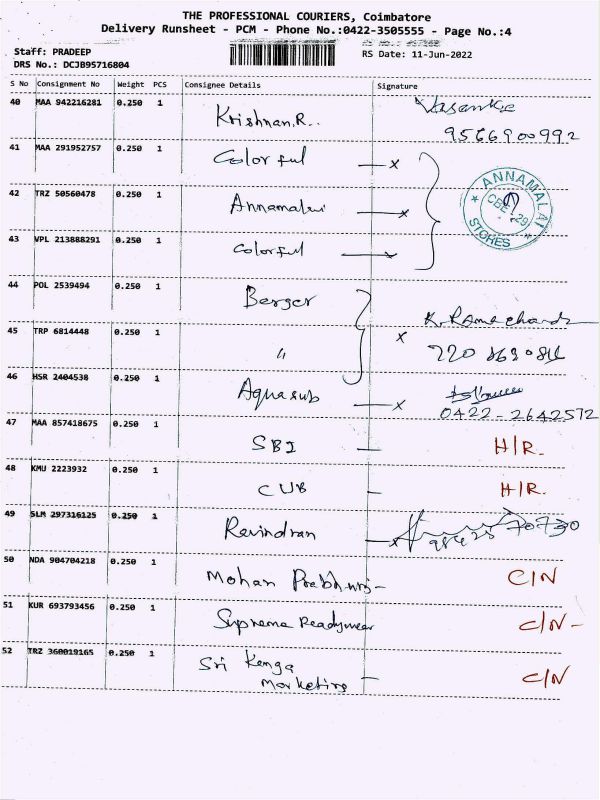 THE PROFESSIONAL COURIERS, Coimbatore
Delivery Runsheet - PCM - Phone No.:0422-3505555 - Page No.:4
Staff: PRADEEP
RS Date: 11-Jun-2022
DRS No.: DCJB95716804
S No Consignment No Weight PCS Consignee Details Signature
40 MAA 942216281 0.250 1 Krishnan.R..
9566900992
41 MAA 291952757 0.250 1 Colorful x
42 TRZ 50560478 0.250 1 Annamalai x
ANNAMALAI STORES CBE 29
43 VPL 213888291 0.250 1 Colorful x
44 POL 2539494 0.250 1 Berger
45 TRP 6814448 0.250 1 " x
46 HSR 2404538 0.250 1 Aquasub x
0422-2642572
47 MAA 857418675 0.250 1 SBI - H/R.
48 KMU 2223932 0.250 1 CUB - H/R.
49 SLM 297316125 0.250 1 Ravindran x
50 NDA 904704218 0.250 1 Mohan - C/N
51 KUR 693793456 0.250 1 Suprema Readywear C/N -
52 TRZ 360019165 0.250 1 Sri Kenga - C/N
Marketing